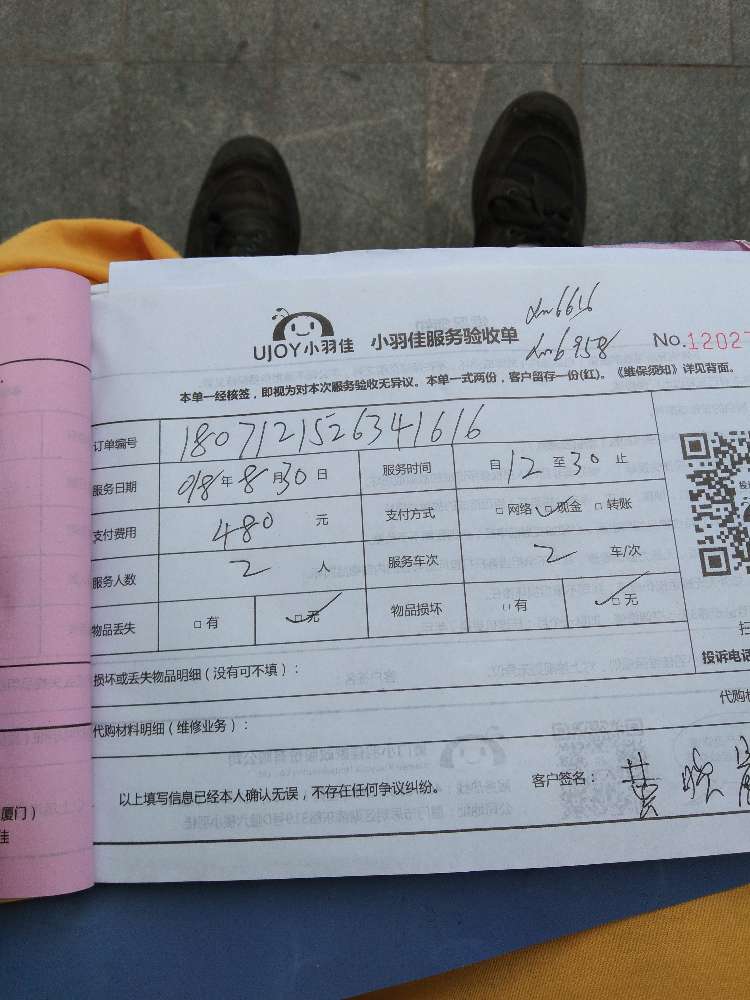 UJOY小羽佳 小羽佳服务验收单 No.12027
本单一经核签，即视为对本次服务验收无异议。本单一式两份，客户留存一份(红)。《维保须知》详见背面。
订单编号 1807121526341616
服务日期 018年8月30日 服务时间 自12至30止
支付费用 480元 支付方式 □网络 ☑现金 □转账
服务人数 2人 服务车次 2车/次
物品丢失 □有 ☑无 物品损坏 □有 ☑无
投诉电话
损坏或丢失物品明细（没有可不填）：
代购材料明细（维修业务）： 代购
以上填写信息已经本人确认无误，不存在任何争议纠纷。 客户签名：黄晓
厦门）
佳